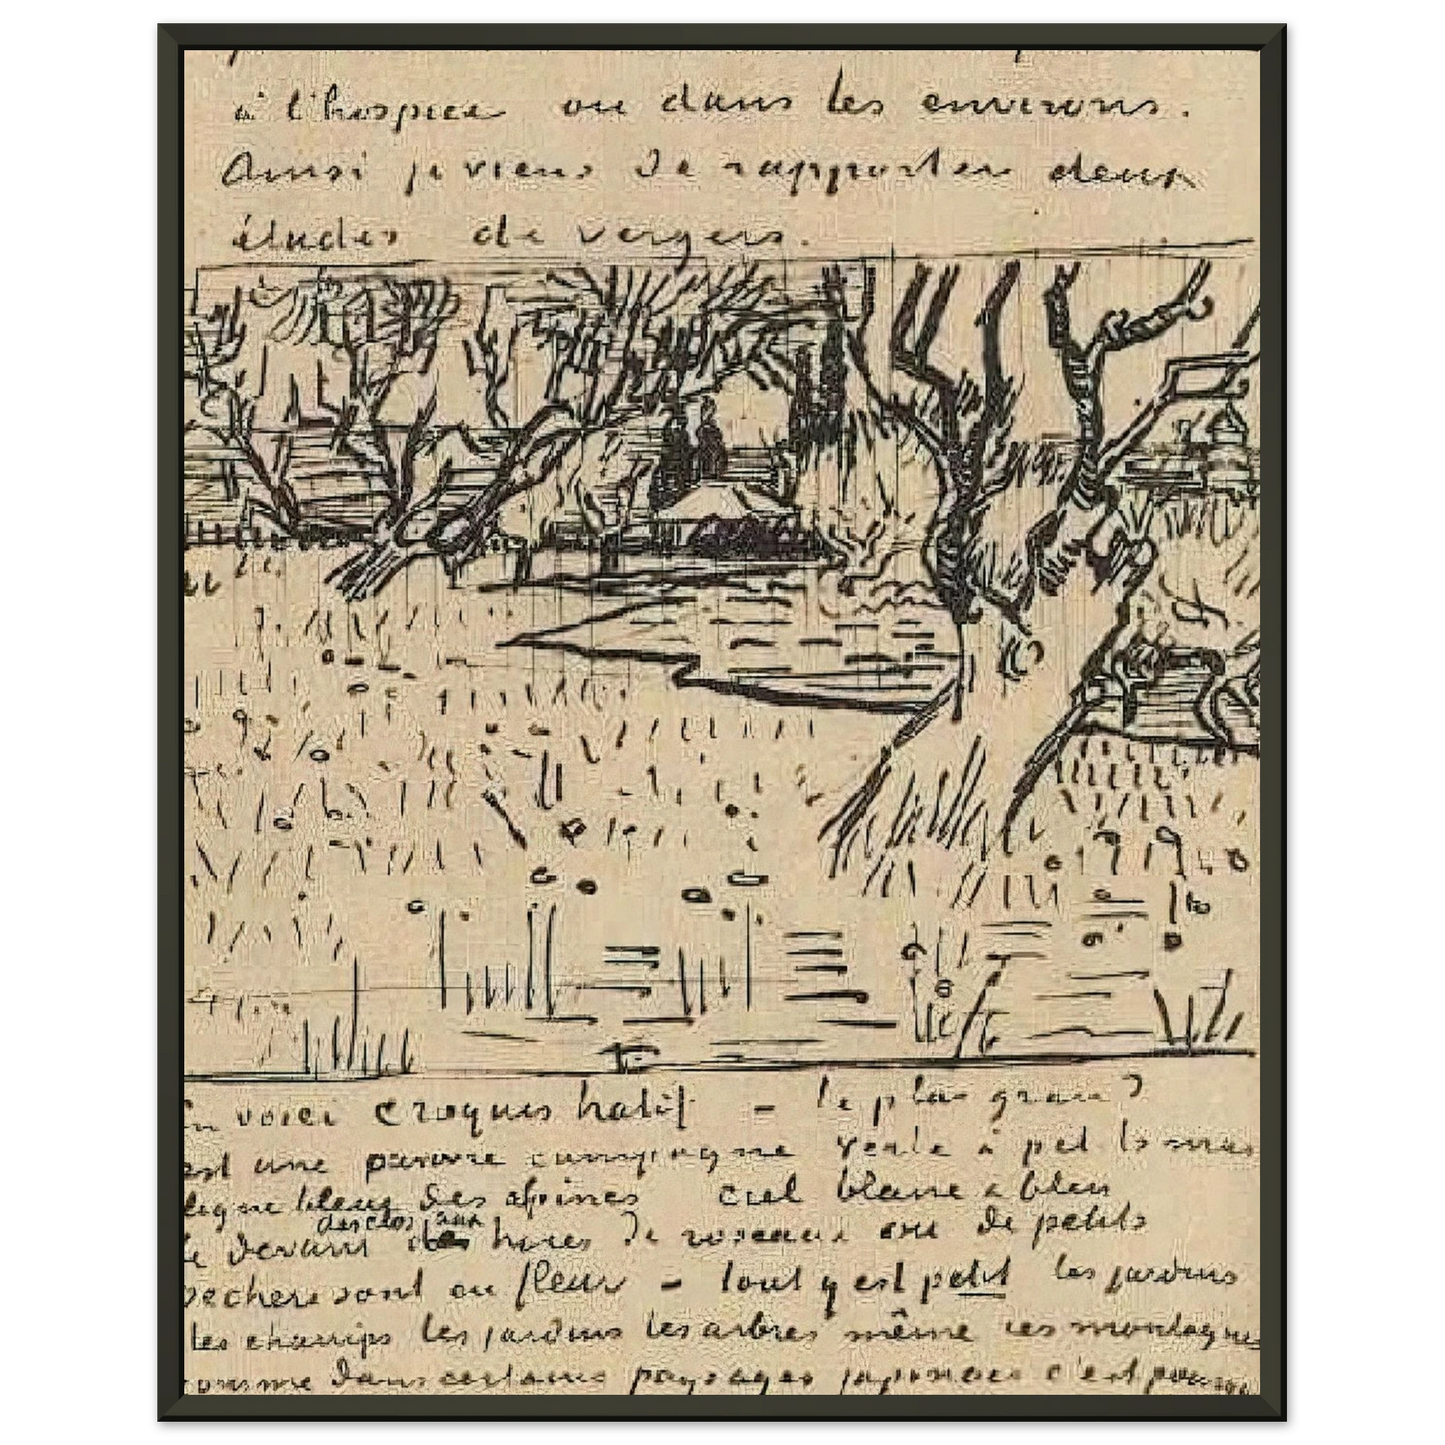 à l'hospice ou dans les environs.
Ainsi je viens de rapporter deux
études de vergers.
En voici croquis hatif - le plus grand
est une pauvre campagne verte à petits mas
ligne bleue des alpines ciel blanc & bleu
Le devant des clos aux haies de roseaux où de petits
pechers sont en fleur - tout y est petit les jardins
les champs les jardins les arbres même ces montagnes
comme dans certains paysages japonais c'est pour